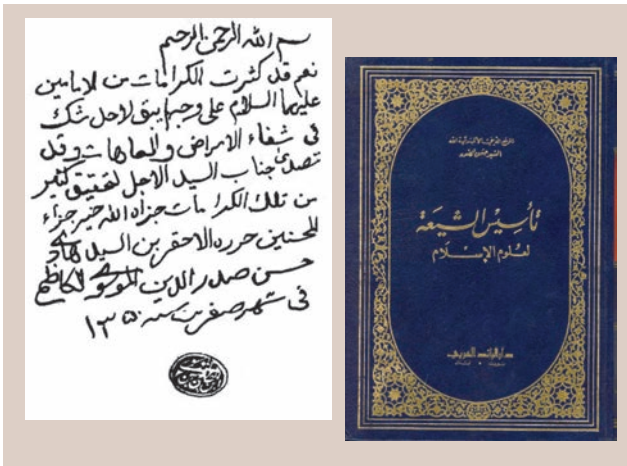 بسم الله الرحمن الرحيم
نعم قد كثرت الكرامات من الامامين
عليهما السلام على وجه لم يبق لاحد شك
في شفاء الامراض والعاهات وقد
تصدى جناب السيد الاجل لتحقيق كثير
من تلك الكرامات جزاه الله خير جزاء
المحسنين حرره الاحقر بن السيد هادي
حسن صدر الدين الموسوي الكاظمي
في شهر صفر سنه ١٣٥٠
تأسيس الشيعة
لعلوم الإسلام
دار الرائد العربي